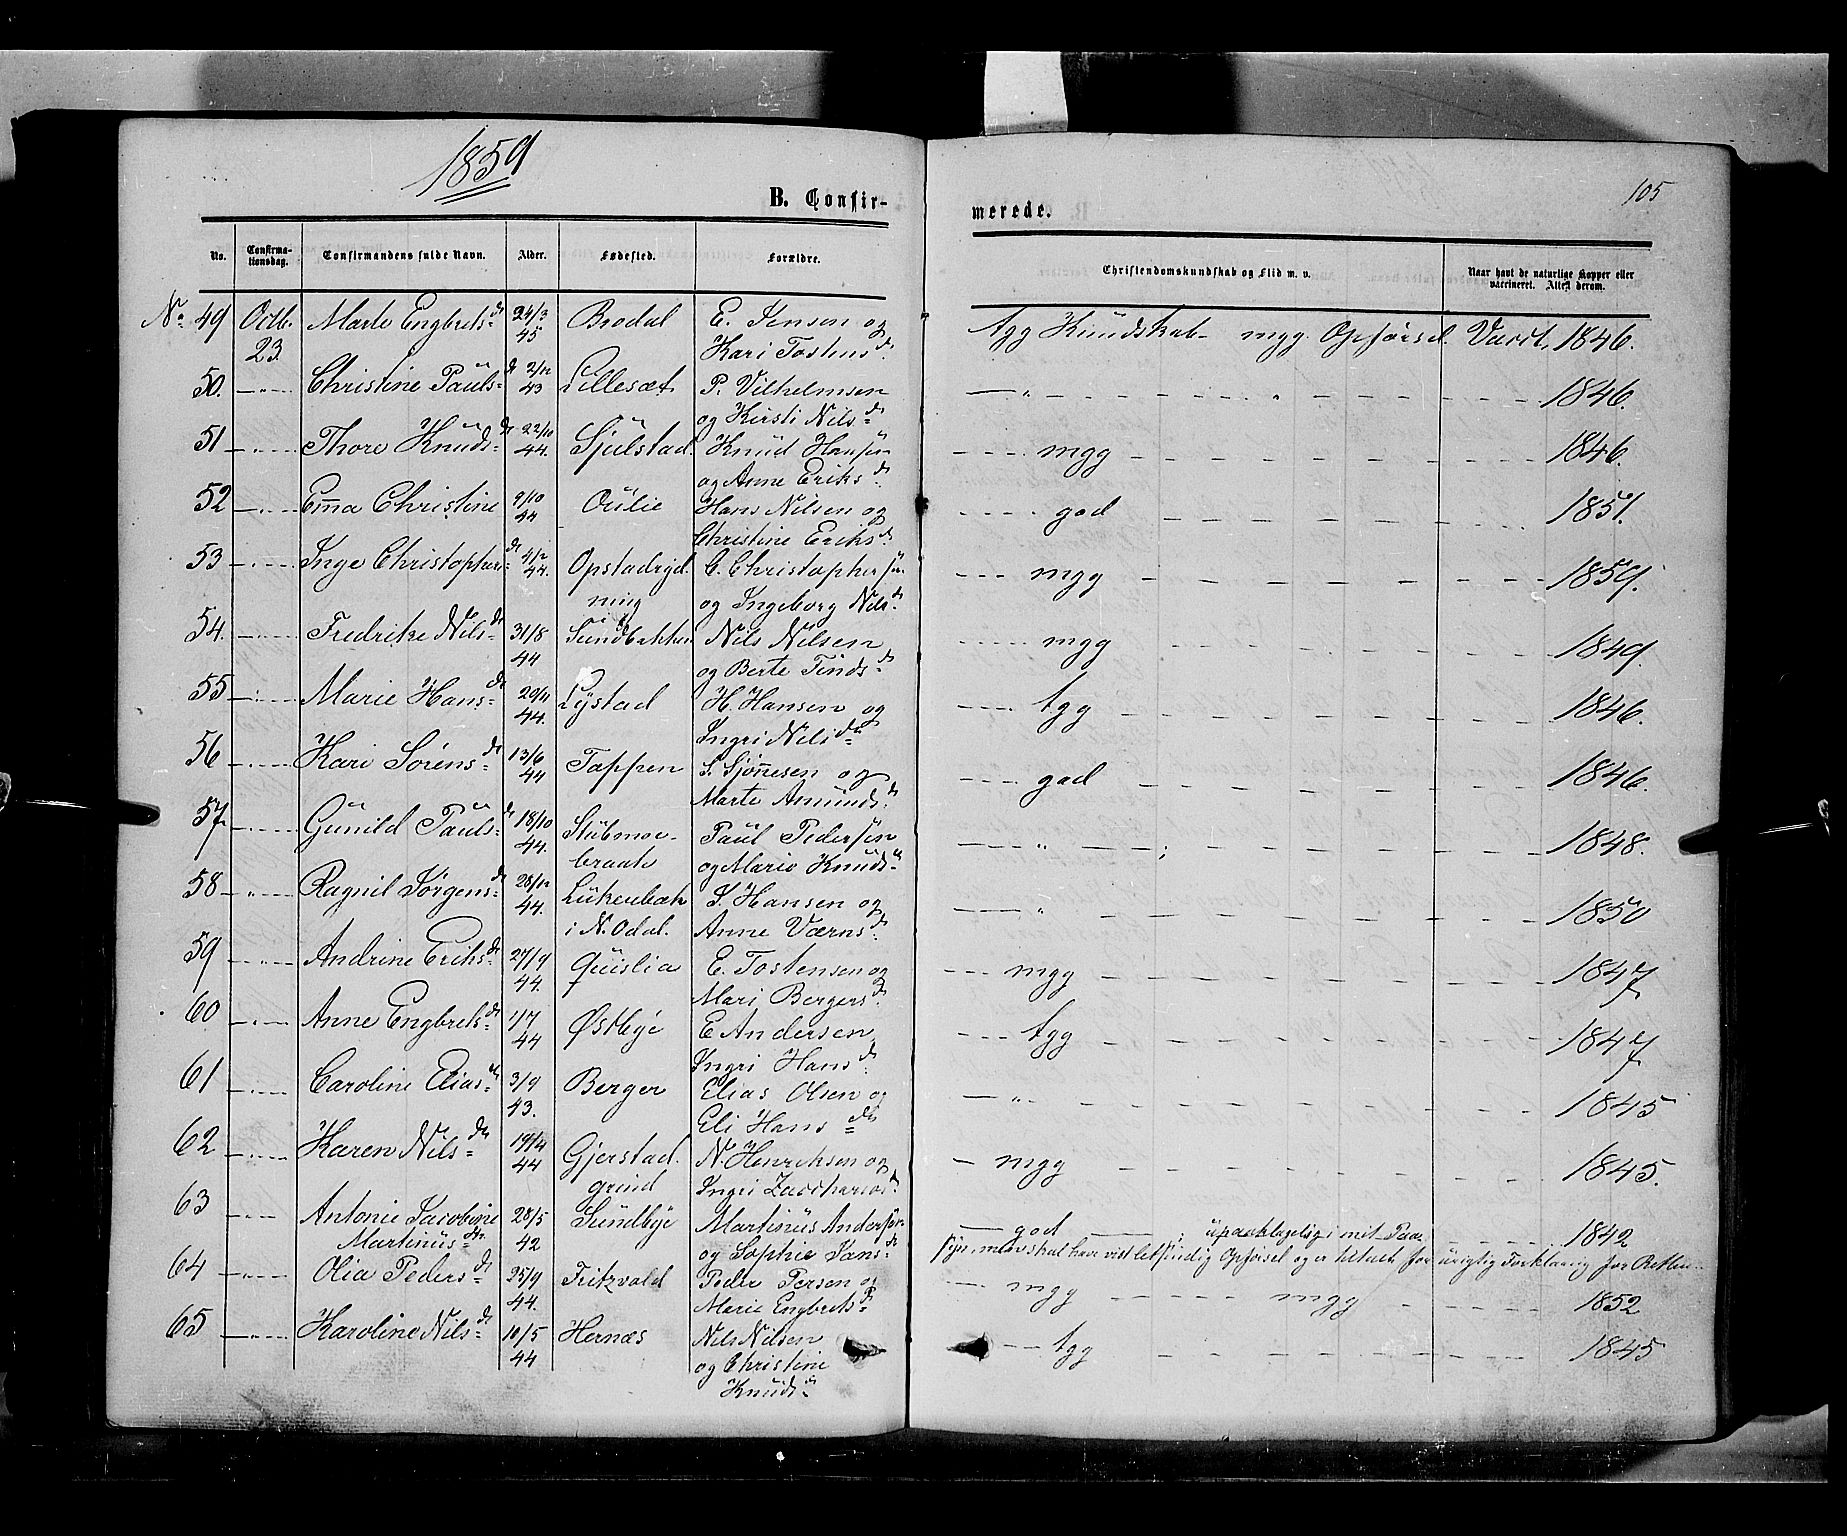 1859
105
B. Confirmerede.
No. Confirmationsdag. Confirmandens fulde Navn. Alder. Fødested. Forældre. Christendomskundskab og Flid m. v. Naar havt de naturlige Kopper eller vaccineret. Attest derom.
No 49 Octb. 23 Marte Engbretsdr 24/3 45 Brodal E. Jensen og Kari Tostensdr. tgg Kundskab mgg. Opførsel Vacct. 1846.
50. Christine Paulsdr 2/12 43 Lillesæt P. Vilhelmsen og Kirsti Nilsdr 1846.
51 Thore Knudsdr 22/10 44. Sjulstad Knud Hansen og Anne Eriksdr. mgg 1846.
52 Emma Christine 9/10 44 Oulie Hans Nilsen og Christine Eriksdr. god 1851.
53 Inge Christophersdr 4/12 44. Opstadrydning C. Christophersen og Ingeborg Nilsdr mgg 1859.
54. Fredrike Nilsdr 31/8 44 Sundbakken Nils Nilsen og Berte Findsdr mgg 1849.
55 Marie Hansdr 29/11 44. Lystad H. Hansen og Ingri Nilsdr tgg 1846.
56 Kari Sørensdr 13/6 44 Tappen S. Sjønnesen og Marte Amundsdr. god 1846.
57. Gunild Paulsdr 18/10 44. Stubmoebraate Paul Pedersen og Marie Knudsdr " 1848.
58 Ragnil Jørgensdr 28/12 44. Lukenbæk i N. Odal. J. Hansen og Anne Værnsdr. " 1850
59 Andrine Eriksdr 27/9 44. Quislia E. Tostensen og Mari Bergersdr. mgg 1847
60 Anne Engbretsdr 1/7 44 Østbye E Andersen Ingri Hansdr. tgg 1847
61 Caroline Eliasdr 3/9 43. Berger Elias Olsen og Eli Hansdr " 1845
62 Karen Nilsdr 19/4 44 Gjerstadgrind N. Henriksen og Ingri Zacchariasdr. mgg 1845.
63 Antonie Jacobine Martinusdr. 28/5 42 Sundbye Martinus Andersen og Sophie Jansdr god ; upaaklagelig i mit Paasyn, men skal have vist letsindig Opførsel og er tiltalt for urigtig Forklaring for Retten 1842
64 Olia Pedersdr 25/9 44. Fritzvold Peder Persen og Marie Engbretsdr mgg mgg 1852
65 Karoline Nilsdr 10/5 44 Hernæs Nils Nilsen og Christine Knudsdr tgg 1845